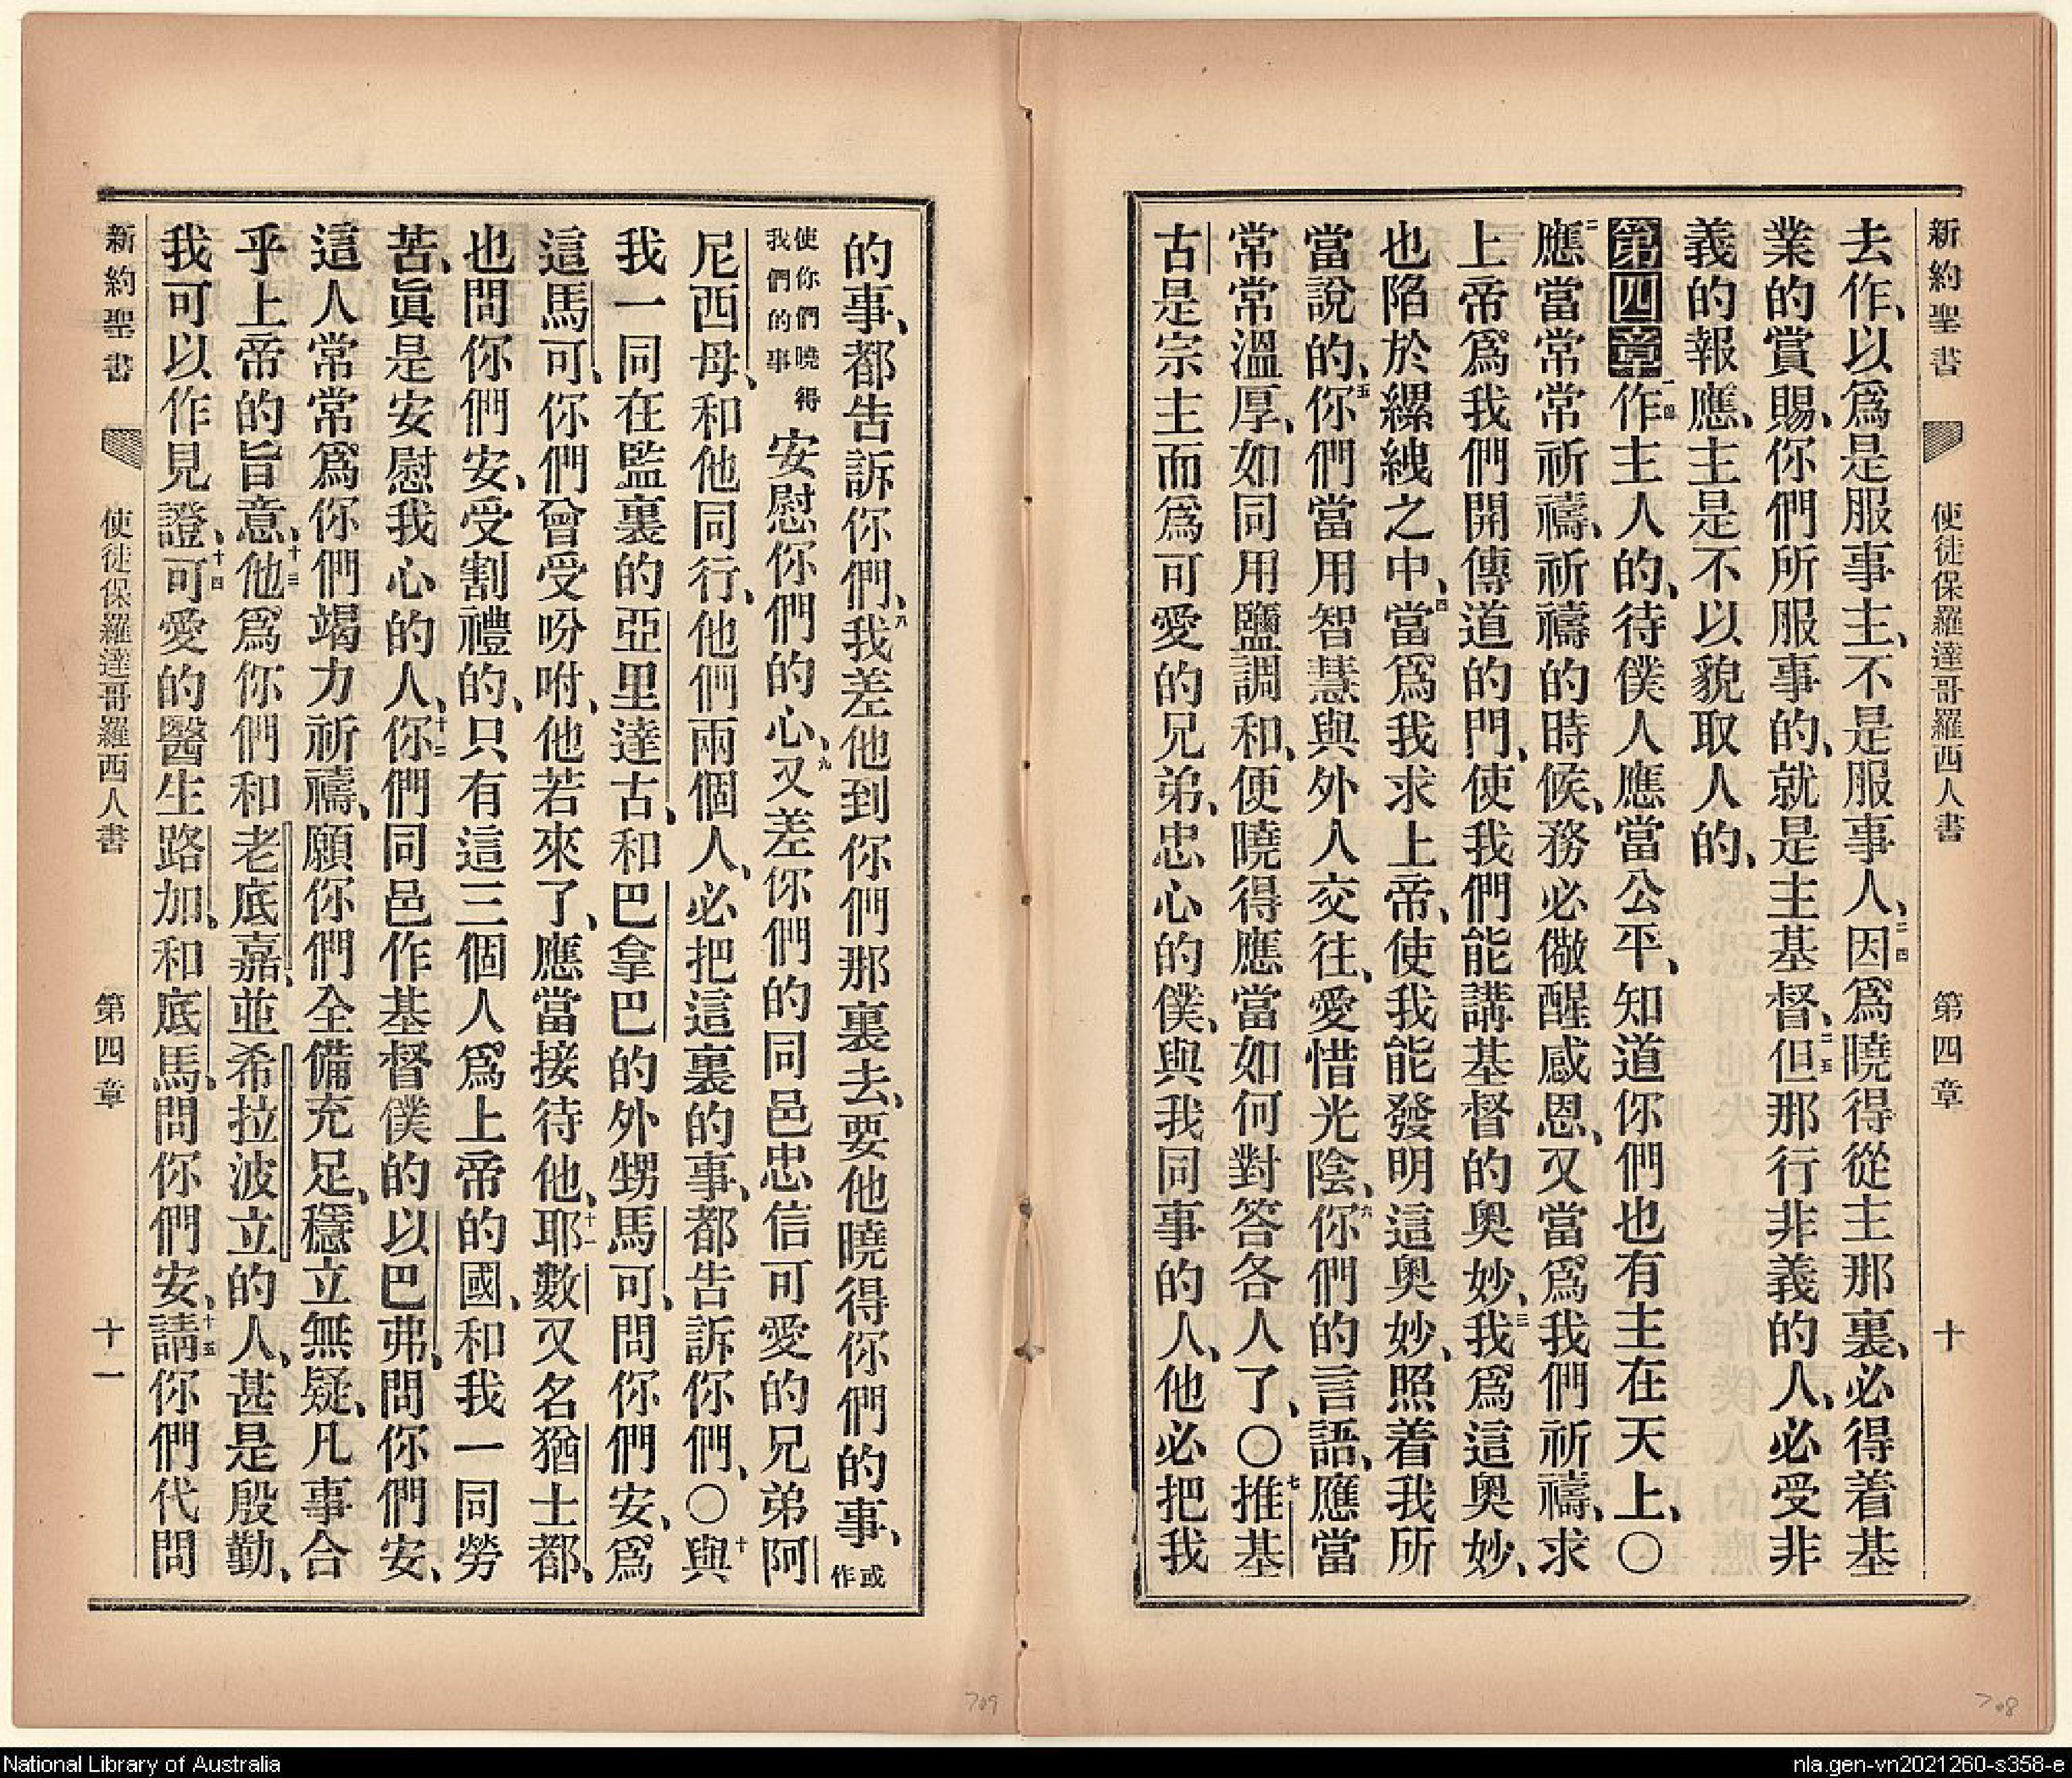 新約聖書 使徒保羅達哥羅西人書 第四章 十
去作、以爲是服事主、不是服事人、二四因爲曉得從主那裏、必得着基
業的賞賜、你們所服事的、就是主基督、二五但那行非義的人、必受非
義的報應、主是不以貌取人的、
第四章一四作主人的、待僕人應當公平、知道你們也有主在天上、〇
二應當常常祈禱、祈禱的時候、務必儆醒感恩、又當爲我們祈禱、求
上帝爲我們開傳道的門、使我們能講基督的奧妙、三我爲這奧妙、
也陷於縲絏之中、四當爲我求上帝、使我能發明這奧妙、照着我所
當說的、五你們當用智慧與外人交往、愛惜光陰、六你們的言語、應當
常常溫厚、如同用鹽調和、便曉得應當如何對答各人了、〇七推基
古是宗主而爲可愛的兄弟、忠心的僕、與我同事的人、他必把我
的事、都告訴你們、八我差他到你們那裏去、要他曉得你們的事、或作
使你們曉得我們的事 安慰你們的心、九又差你們的同邑忠信可愛的兄弟阿
尼西母、和他同行、他們兩個人、必把這裏的事、都告訴你們、〇十與
我一同在監裏的亞里達古、和巴拿巴的外甥馬可、問你們安、爲
這馬可、你們曾受吩咐、他若來了、應當接待他、十一耶數又名猶士都、
也問你們安、受割禮的、只有這三個人爲上帝的國、和我一同勞
苦、眞是安慰我心的人、十二你們同邑作基督僕的以巴弗、問你們安、
這人常常爲你們竭力祈禱、願你們全備充足、穩立無疑、凡事合
乎上帝的旨意、十三他爲你們和老底嘉、並希拉波立的人、甚是殷勤、
我可以作見證、十四可愛的醫生路加、和底馬、問你們安、十五請你們代問
新約聖書 使徒保羅達哥羅西人書 第四章 十一
709
708
National Library of Australia
nla.gen-vn2021260-s358-e